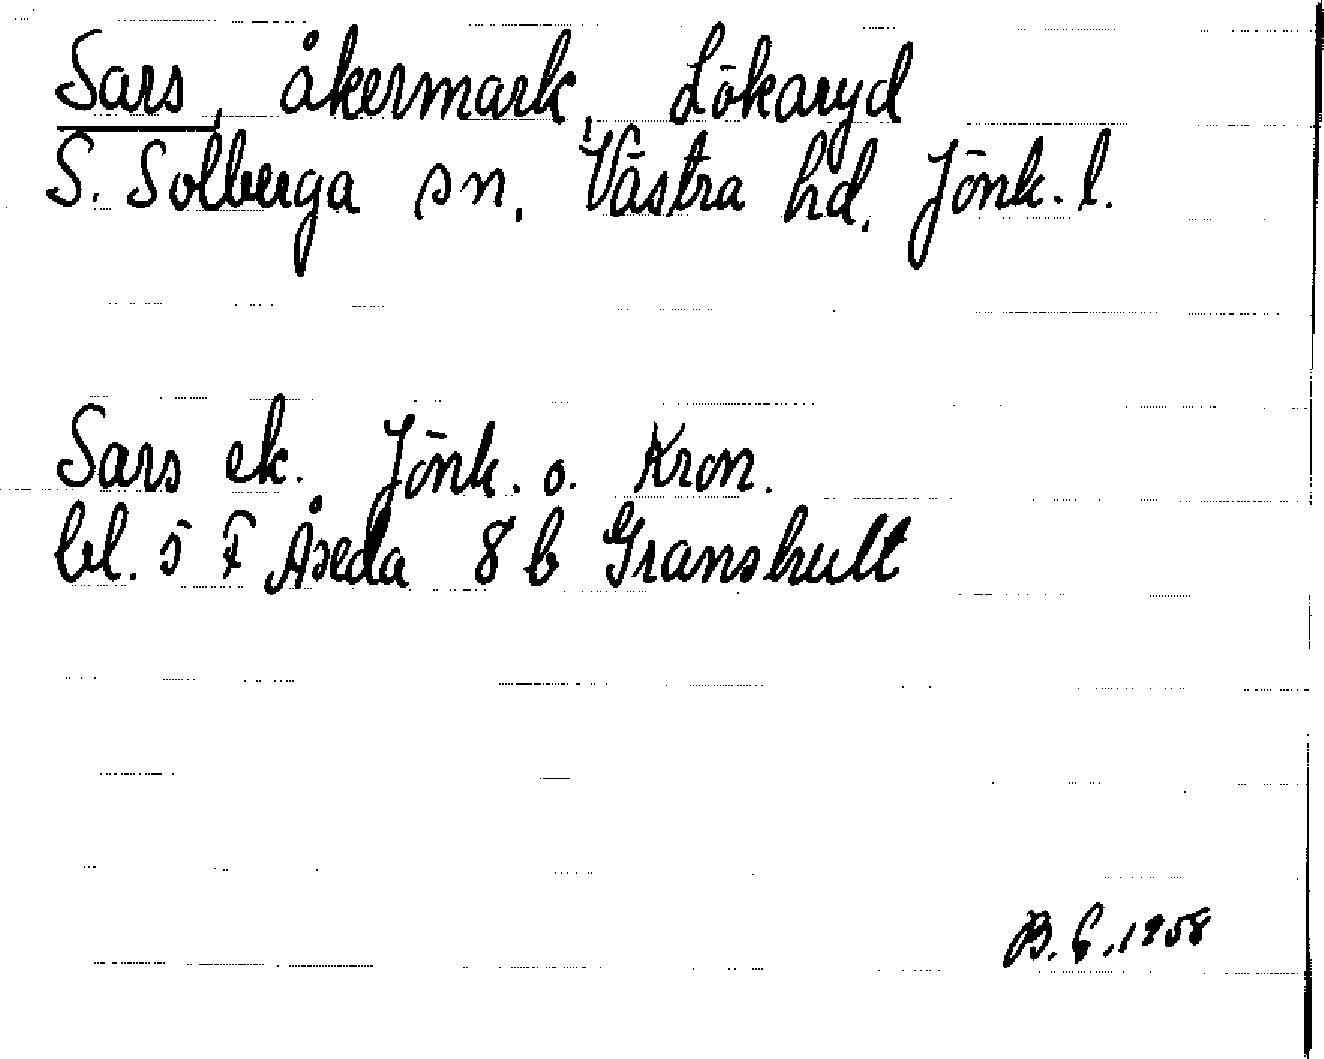 Sars, åkermark, Lökaryd
S. Solberga sn, Västra hd, Jönk. l.
Sars ek. Jönk. o. Kron.
bl. 5 F Åseda 8 b Granshult
B. G. 1958